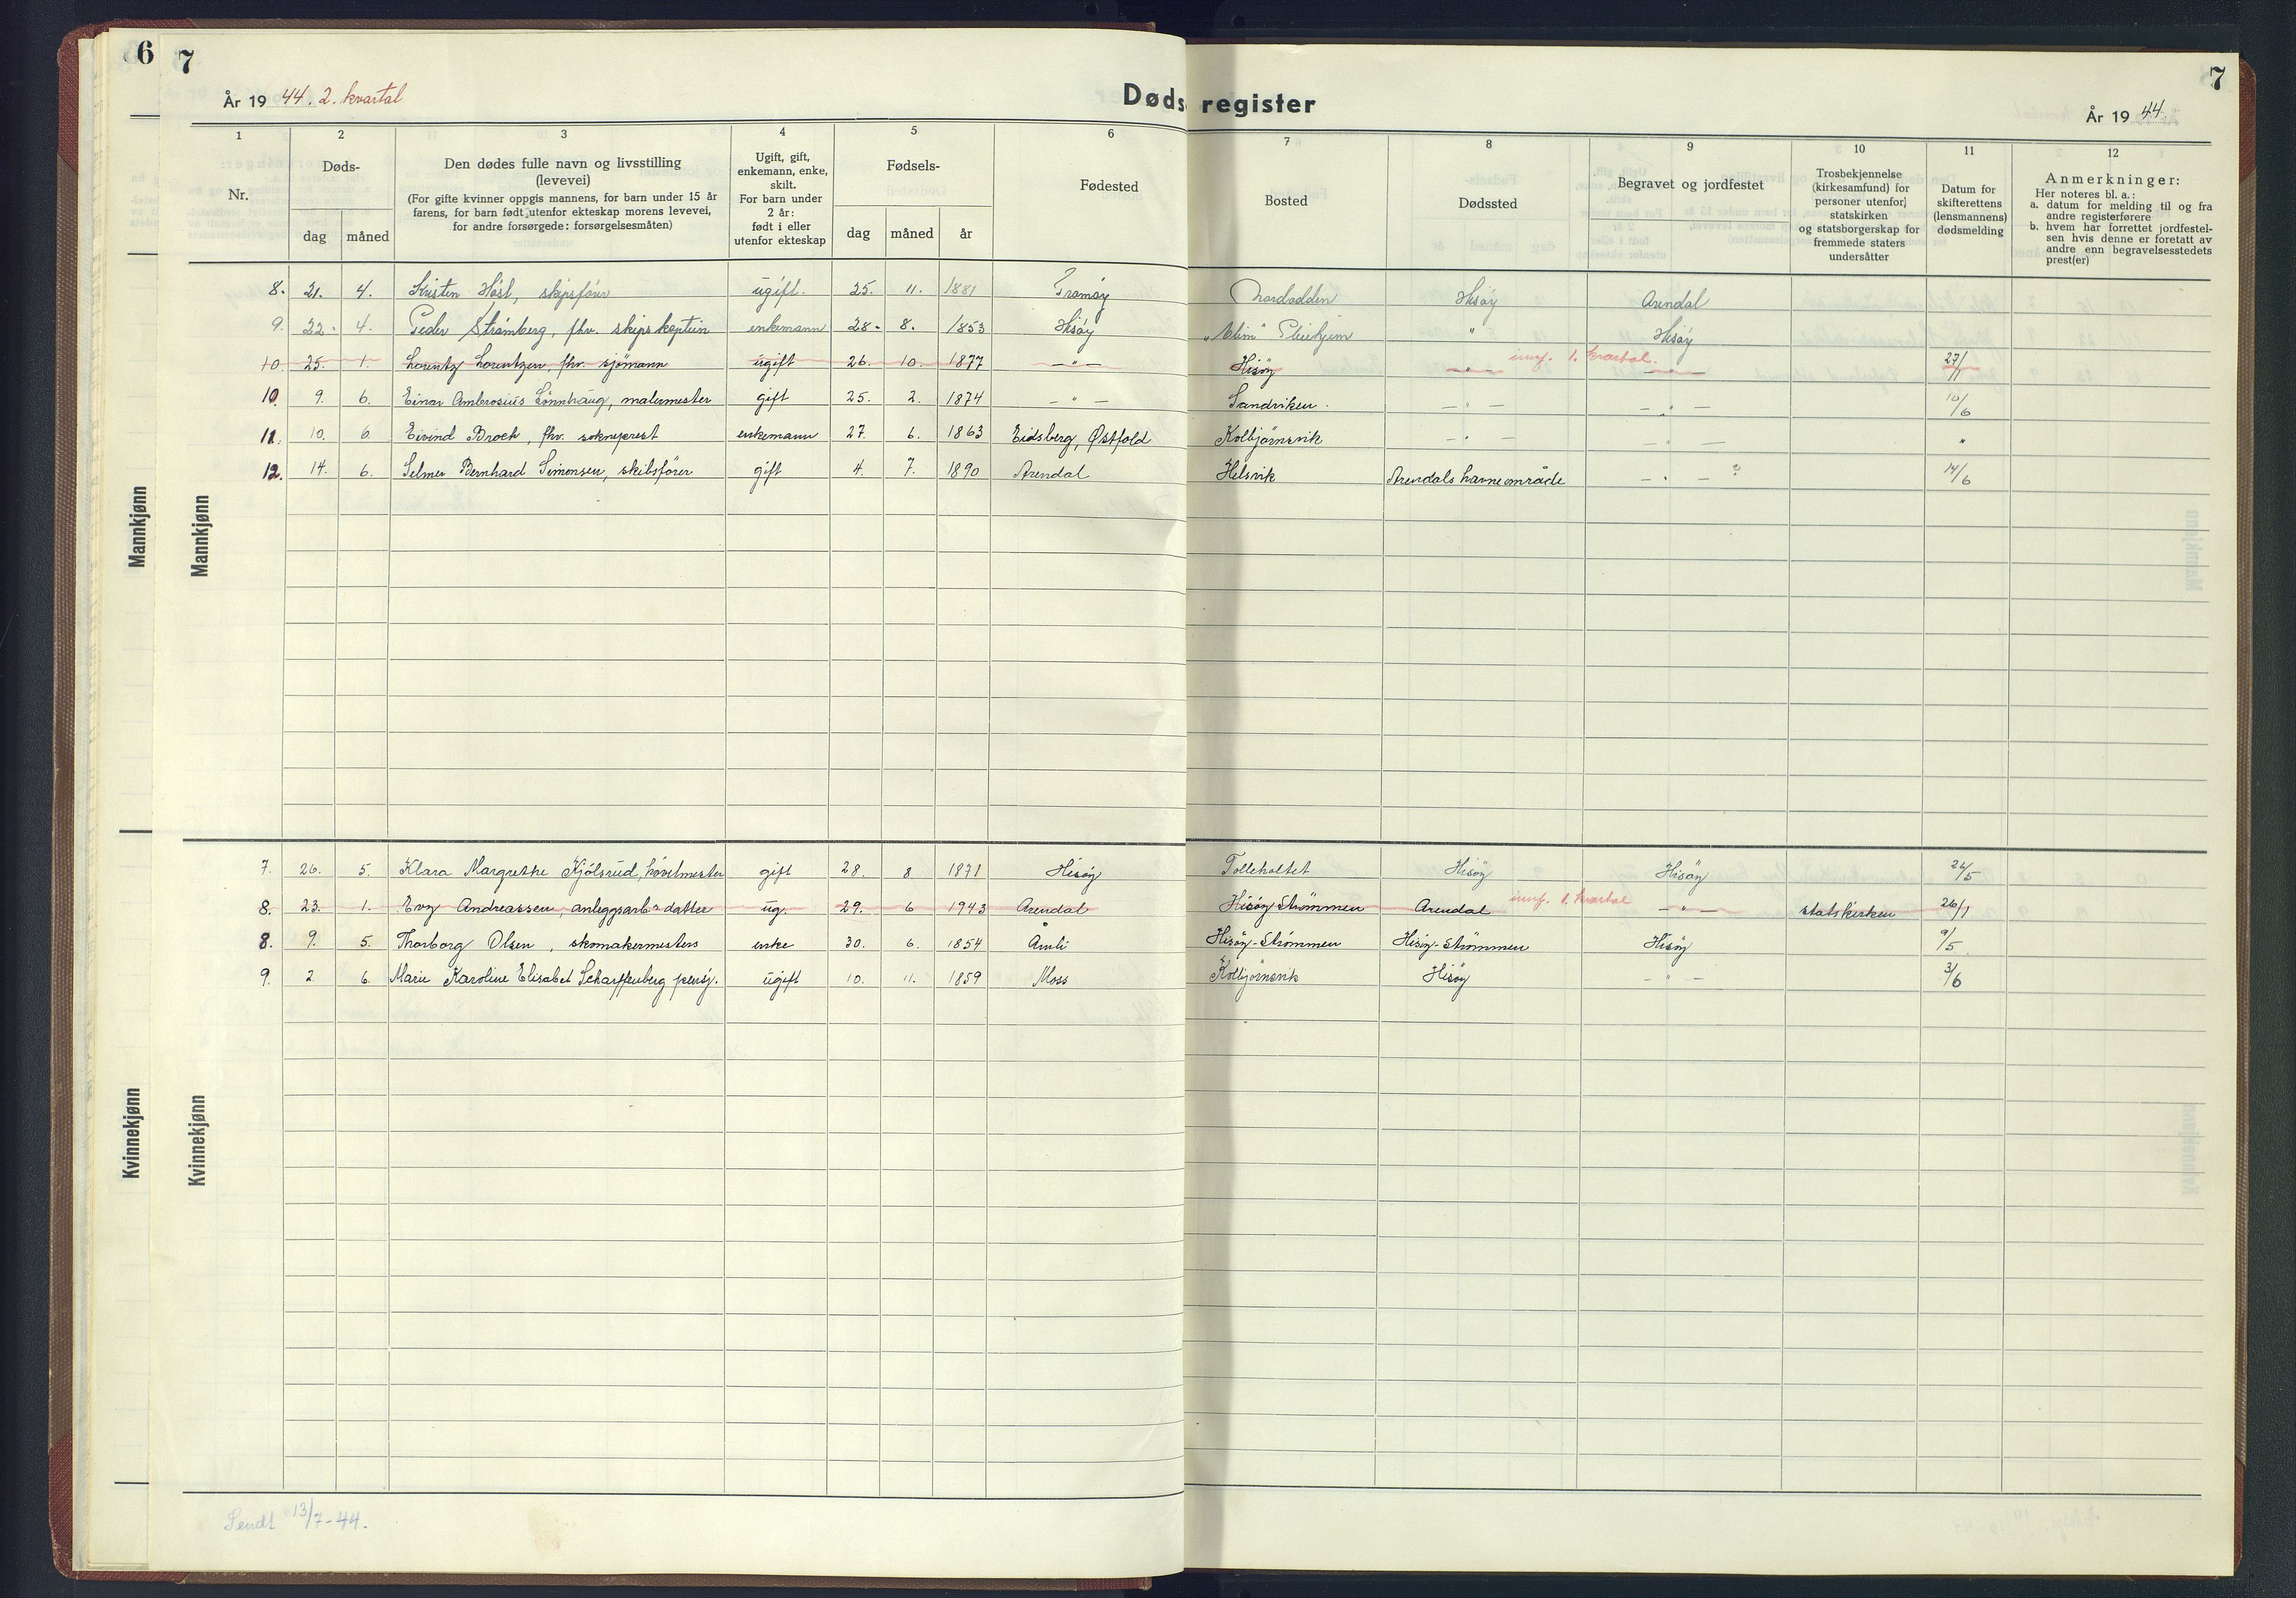 6 7
År 19 44. 2. kvartal
Dødsregister
År 19 44.
7
1 2 3 4 5 6 7 8 9 10 11 12
Nr.
Døds-
dag måned
Den dødes fulle navn og livsstilling
(levevei)
(For gifte kvinner oppgis mannens, for barn under 15 år
farens, for barn født utenfor ekteskap morens levevei,
for andre forsørgede: forsørgelsesmåten)
Ugift, gift,
enkemann, enke,
skilt.
For barn under
2 år:
født i eller
utenfor ekteskap
Fødsels-
dag måned år
Fødested
Bosted
Dødssted
Begravet og jordfestet
Trosbekjennelse
(kirkesamfund) for
personer utenfor
statskirken
og statsborgerskap for
fremmede staters
undersåtter
Datum for
skifterettens
(lensmannens)
dødsmelding
Anmerkninger:
Her noteres bl. a.:
a. datum for melding til og fra
andre registerførere
b. hvem har forrettet jordfestel-
sen hvis denne er foretatt av
andre enn begravelsesstedets
prest(er)
Mannkjønn
Mannkjønn
8. 21. 4. Kristen Høsl, skipsfører ugift. 25. 11. 1881 Tromøy Hisøy Arendal
9. 22. 4. Peder Strömberg, fhv. skipskaptein enkemann 28. 8. 1853 Hisøy "Elim" Pleiehjem " Hisøy
10. 25. 1. Lorentz Lorentzen, fhv. sjömann ugift 26. 10. 1877 — " — Hisöy — " — innf. 1. kvartal. — " — 27/1
10. 9. 6. Einar Ambrosius Lönnhaug, malermester gift 25. 2. 1874 — " — Sandviken. — " — — " — 10/6
11. 10. 6. Eivind Broch, fhv. sokneprest enkemann 27. 6. 1863 Eidsberg, Østfold Kolbjörnsvik — " — — " — "
12. 14. 6. Selmer Bernhard Simonsen, skibsfører gift 4. 7. 1890 Arendal Helsvik Arendals havneområde — " — ? 14/6
Kvinnekjønn
Kvinnekjønn
7. 26. 5. Klara Margrethe Kjölsrud, hövelmester gift 28. 8 1871 Hisöy Tolleholtet Hisöy Hisöy 26/5
8. 23. 1. Evy Andreassen, anleggsarb. datter ug. 29. 6 1943 Arendal Hisöy Strömmen Arendal innf. 1. kvartal — " — statskirken 26/1
8. 9. 5. Thorborg Olsen, skomakermesters enke 30. 6. 1854 Åmli Hisöy-Strömmen Hisöy-Strömmen Hisöy 9/5
9. 2 6. Marie Karoline Elisabet Scharffenberg pensj. ugift 10. 11. 1859 Moss Kolbjörnsvik Hisöy — " — 3/6
Sendt 13/7-44.